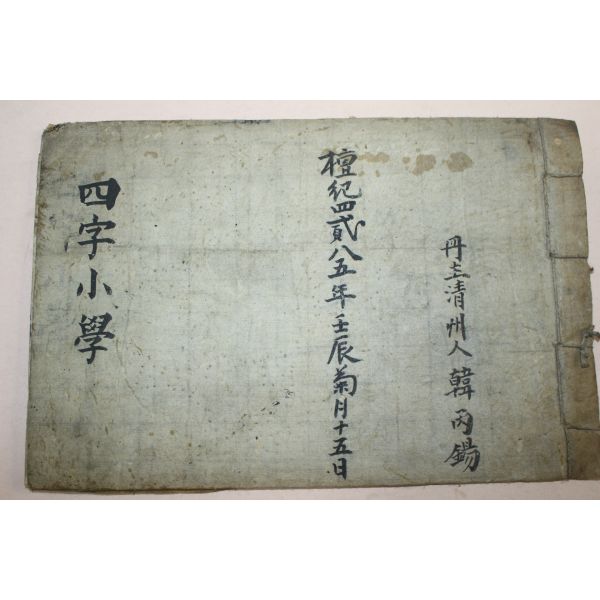 册主清州人韓丙錫
檀紀四貳八五年壬辰菊月十五日
四字小學